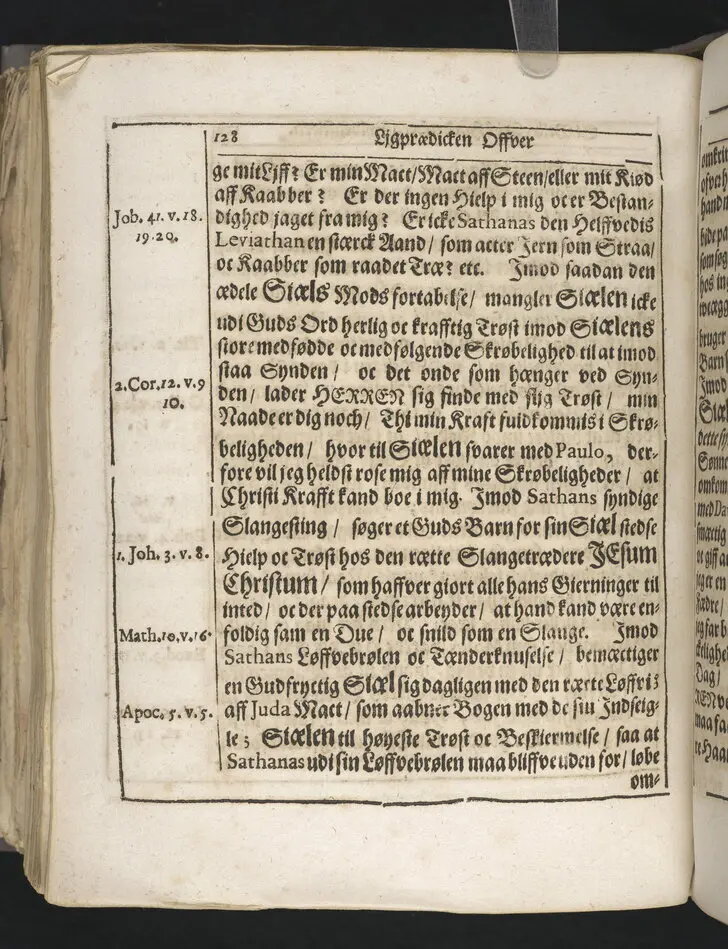 128
Ligprædicken Offver
ge mit Liff? Er min Mact/ Mact aff Steen/ eller mit Kiød
aff Kaabber ? Er der ingen Hielp i mig oc er Bestan-
dighed jaget fra mig? Er icke Sathanas den Helffvedis
Leviathan en stærck Aand/ som acter Jern som Straa/
oc Kaabber som raadet Træ? etc. Imod saadan den
ædele Siæls Mods fortabelse/ mangler Siælen icke
udi Guds Ord herlig oc krafftig Trøst imod Siælens
store medfødde oc medfølgende Skrøbelighed til at imod
staa Synden/ oc det onde som hænger ved Syn-
den/ lader HERREN sig finde med slig Trøst/ min
Naade er dig noch/ Thi min Kraft fuldkommis i Skrø-
beligheden/ hvor til Siælen svarer med Paulo, der-
fore vil jeg heldst rose mig aff mine Skrøbeligheder/ at
Christi Krafft kand boe i mig. Imod Sathans syndige
Slangesting/ søger et Guds Barn for sin Siæl stedse
Hielp oc Trøst hos den rætte Slangetrædere JEsum
Christum/ som haffver giort alle hans Gierninger til
inted/ oc der paa stedse arbeyder/ at hand kand være en-
foldig sam en Due/ oc snild som en Slange. Imod
Sathans Løffvebrølen oc Tænderknuselse/ bemæctiger
en Gudfryctig Siæl sig dagligen med den rætte Løffvis
aff Juda Mact/ som aabner Bogen med de siu Indseig-
le; Siælen til høyeste Trøst oc Beskiermelse/ saa at
Sathanas udi sin Løffvebrølen maa bliffve uden for/ løbe
om-
Job. 41. v. 18.
19. 20.
2. Cor. 12. v. 9
10.
1. Joh. 3. v. 8.
Math. 10. v. 16.
Apoc. 5. v. 5.